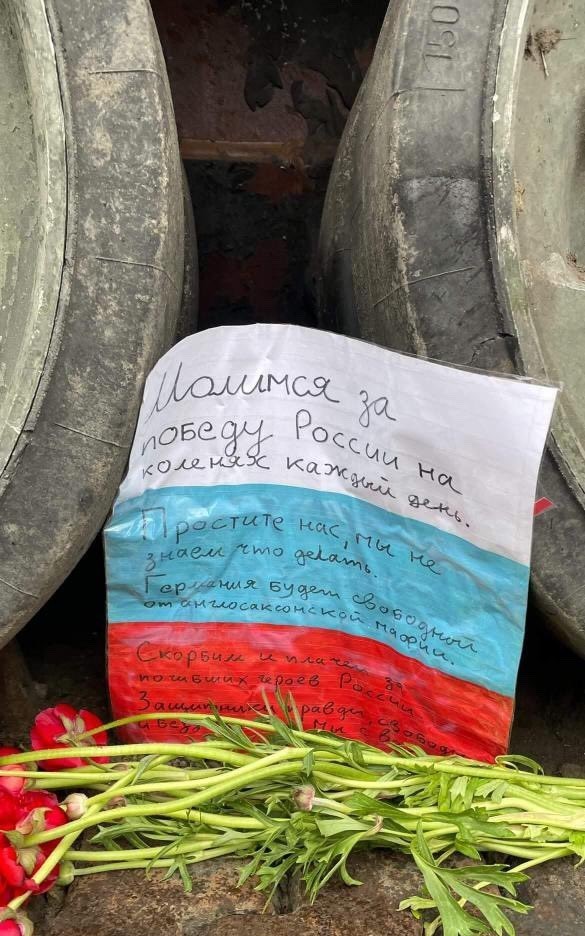 150
Молимся за
победу России на
коленях каждый день.
Простите нас, мы не
знаем что делать.
Германия будет свободной
от англосаксонской мафии.
Скорбим и плачем за
погибших героев России
Защитники правды, свободы
Мы с